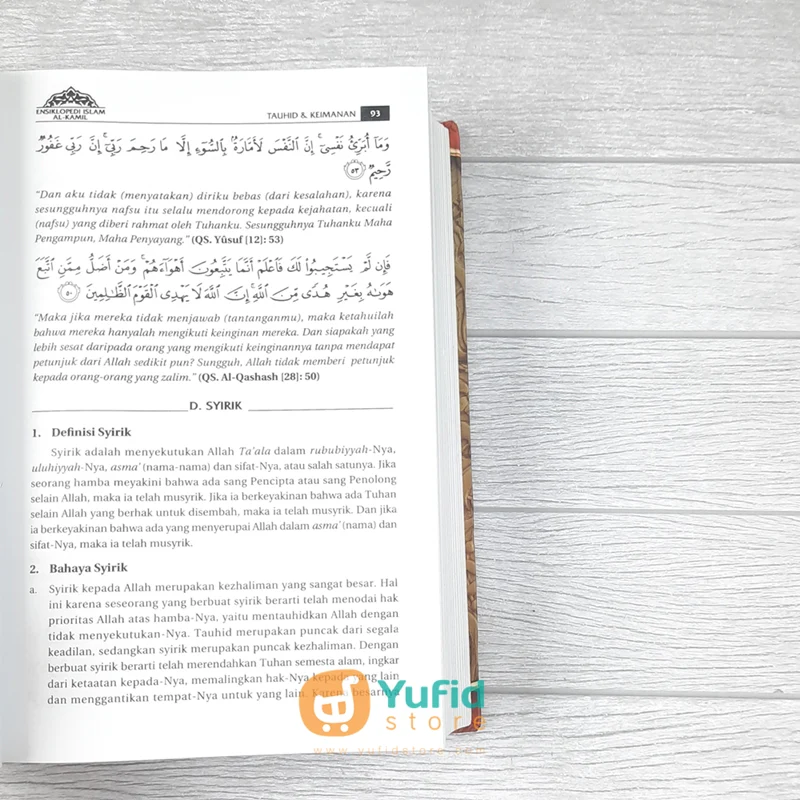 ENSIKLOPEDI ISLAM
AL-KAMIL
TAUHID & KEIMANAN 93
وَمَآ أُبَرِّئُ نَفْسِىٓ ۚ إِنَّ ٱلنَّفْسَ لَأَمَّارَةٌۢ بِٱلسُّوٓءِ إِلَّا مَا رَحِمَ رَبِّىٓ ۚ إِنَّ رَبِّى غَفُورٌ
رَّحِيمٌ ٥٣
“Dan aku tidak (menyatakan) diriku bebas (dari kesalahan), karena
sesungguhnya nafsu itu selalu mendorong kepada kejahatan, kecuali
(nafsu) yang diberi rahmat oleh Tuhanku. Sesungguhnya Tuhanku Maha
Pengampun, Maha Penyayang.” (QS. Yûsuf [12]: 53)
فَإِن لَّمْ يَسْتَجِيبُوا۟ لَكَ فَٱعْلَمْ أَنَّمَا يَتَّبِعُونَ أَهْوَآءَهُمْ ۚ وَمَنْ أَضَلُّ مِمَّنِ ٱتَّبَعَ
هَوَىٰهُ بِغَيْرِ هُدًى مِّنَ ٱللَّهِ ۚ إِنَّ ٱللَّهَ لَا يَهْدِى ٱلْقَوْمَ ٱلظَّـٰلِمِينَ ٥٠
“Maka jika mereka tidak menjawab (tantanganmu), maka ketahuilah
bahwa mereka hanyalah mengikuti keinginan mereka. Dan siapakah yang
lebih sesat daripada orang yang mengikuti keinginannya tanpa mendapat
petunjuk dari Allah sedikit pun? Sungguh, Allah tidak memberi petunjuk
kepada orang-orang yang zalim.” (QS. Al-Qashash [28]: 50)
D. SYIRIK
1. Definisi Syirik
Syirik adalah menyekutukan Allah Ta'ala dalam rububiyyah-Nya,
uluhiyyah-Nya, asma' (nama-nama) dan sifat-Nya, atau salah satunya. Jika
seorang hamba meyakini bahwa ada sang Pencipta atau sang Penolong
selain Allah, maka ia telah musyrik. Jika ia berkeyakinan bahwa ada Tuhan
selain Allah yang berhak untuk disembah, maka ia telah musyrik. Dan jika
ia berkeyakinan bahwa ada yang menyerupai Allah dalam asma' (nama) dan
sifat-Nya, maka ia telah musyrik.
2. Bahaya Syirik
a. Syirik kepada Allah merupakan kezhaliman yang sangat besar. Hal
ini karena seseorang yang berbuat syirik berarti telah menodai hak
prioritas Allah atas hamba-Nya, yaitu mentauhidkan Allah dengan
tidak menyekutukan-Nya. Tauhid merupakan puncak dari segala
keadilan, sedangkan syirik merupakan puncak kezhaliman. Dengan
berbuat syirik berarti telah merendahkan Tuhan semesta alam, ingkar
dari ketaatan kepada-Nya, memalingkan hak-Nya kepada yang lain
dan menggantikan tempat-Nya untuk yang lain. Karena besarnya
Yufid
store
www.yufidstore.com